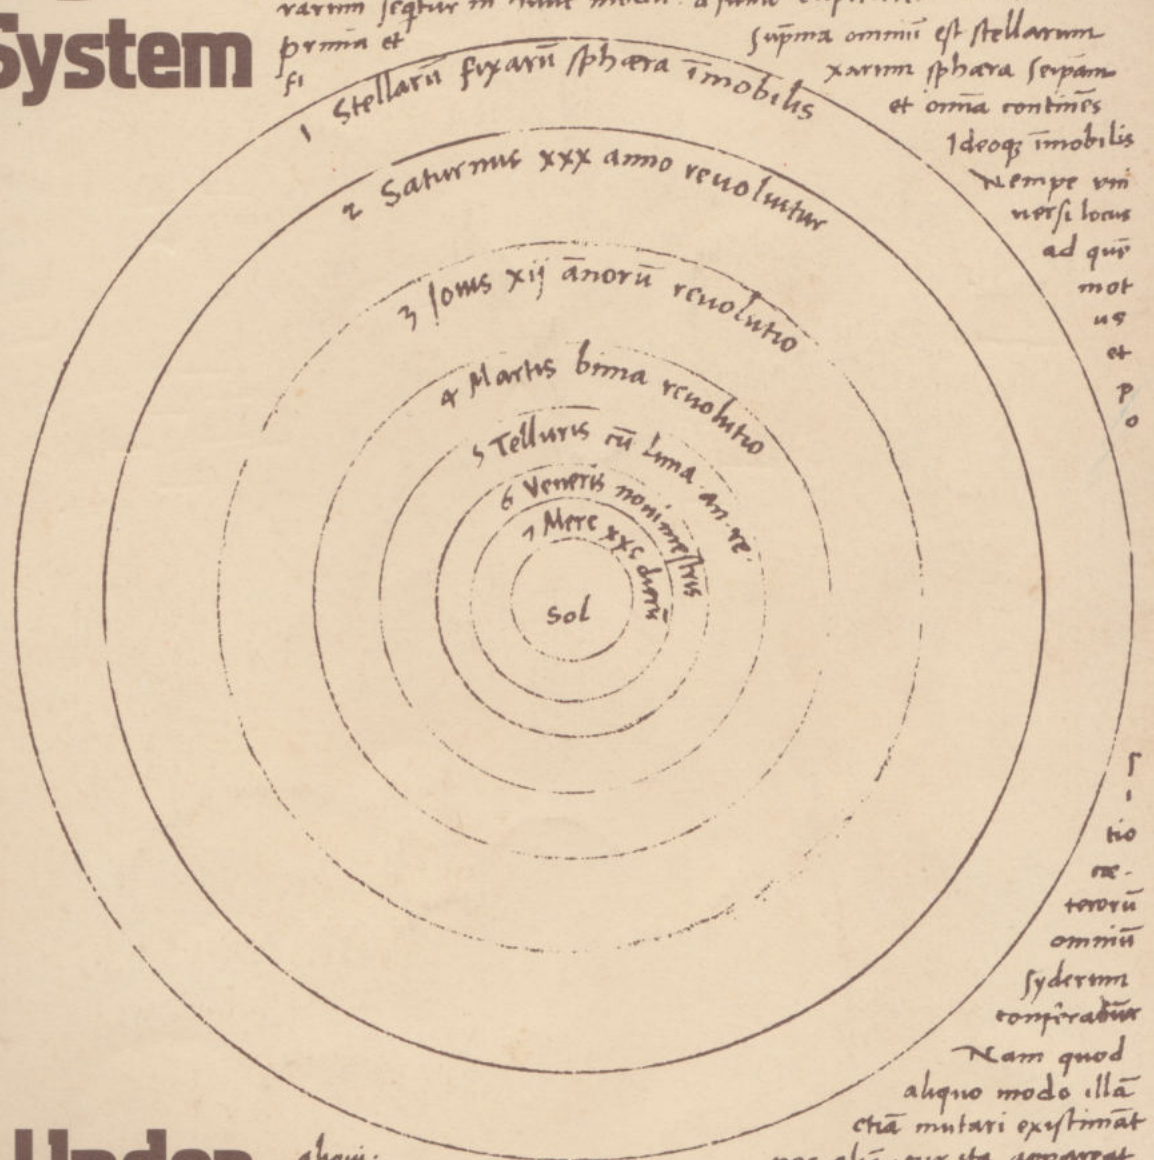 System
prima et
fi
1 Stellarū fixarū sphæra īmobilis
2 Saturnus xxx anno reuoluitur
3 Jouis xij ānorū reuolutio
4 Martis bima reuolutio
5 Telluris cū Luna an. re.
6 Veneris nonimestris
7 Merc xxc dierū
Sol
supma omniū est stellarum
xarum sphæra seipam
et omīa continēs
Ideoqȝ īmobilis
Nempe vni
uersi locus
ad quē
mot
us
et
p
o
s
i
tio
cæ-
terorū
omniū
syderum
Nam quod
aliquo modo illā
etiā mutari existimāt
Under
aliqui: